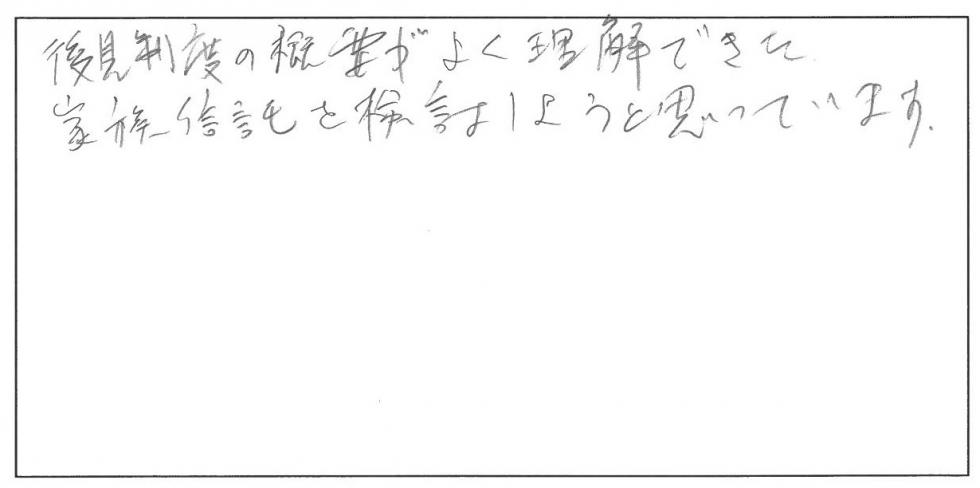 後見制度の概要がよく理解できた.
家族信託を検討しようと思っています.